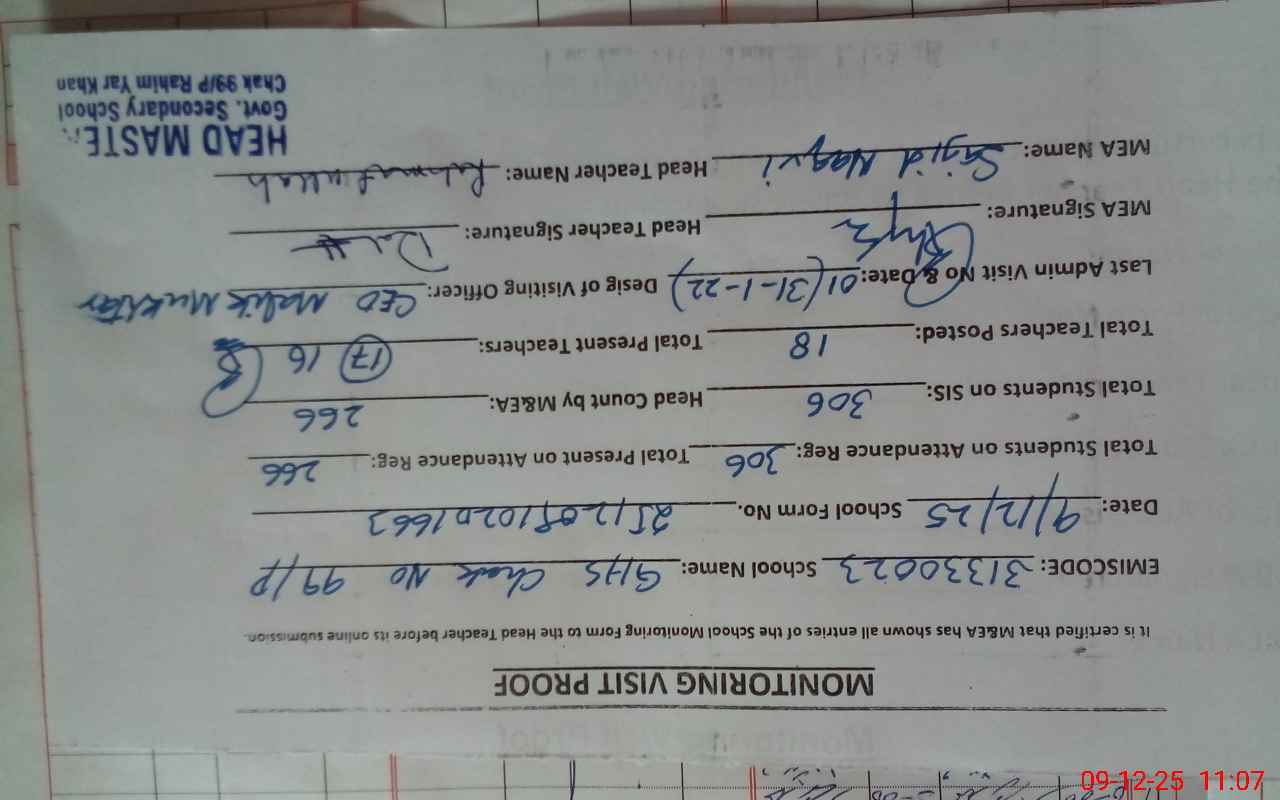 MONITORING VISIT PROOF
It is certified that M&EA has shown all entries of the School Monitoring Form to the Head Teacher before its online submission.
EMISCODE: 31330023 School Name: GHS Chak No 99/P
Date: 9/12/25 School Form No.
Total Students on Attendance Reg: 306 Total Present on Attendance Reg: 266
Total Students on SIS: 306 Head Count by M&EA: 266
Total Teachers Posted: 18 Total Present Teachers: 17 16
Last Admin Visit No & Date: 01 (31-1-22) Desig of Visiting Officer: CEO Malik Mukhtar
MEA Signature: Head Teacher Signature:
MEA Name: Sajid Naqvi Head Teacher Name: Rahmatullah
HEAD MASTER
Govt. Secondary School
Chak 99/P Rahim Yar Khan
09-12-25 11:07